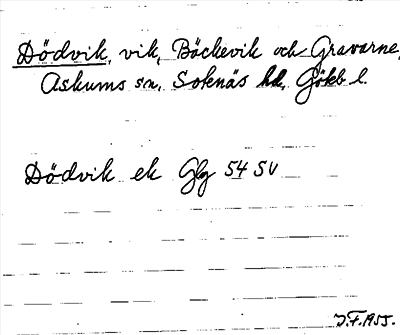 Dödvik, vik, Bäckevik och Gravarne,
Askums sn, Sotenäs hd, Göteb l.
Dödvik ek Glg 54 SV
J.F. 1955.